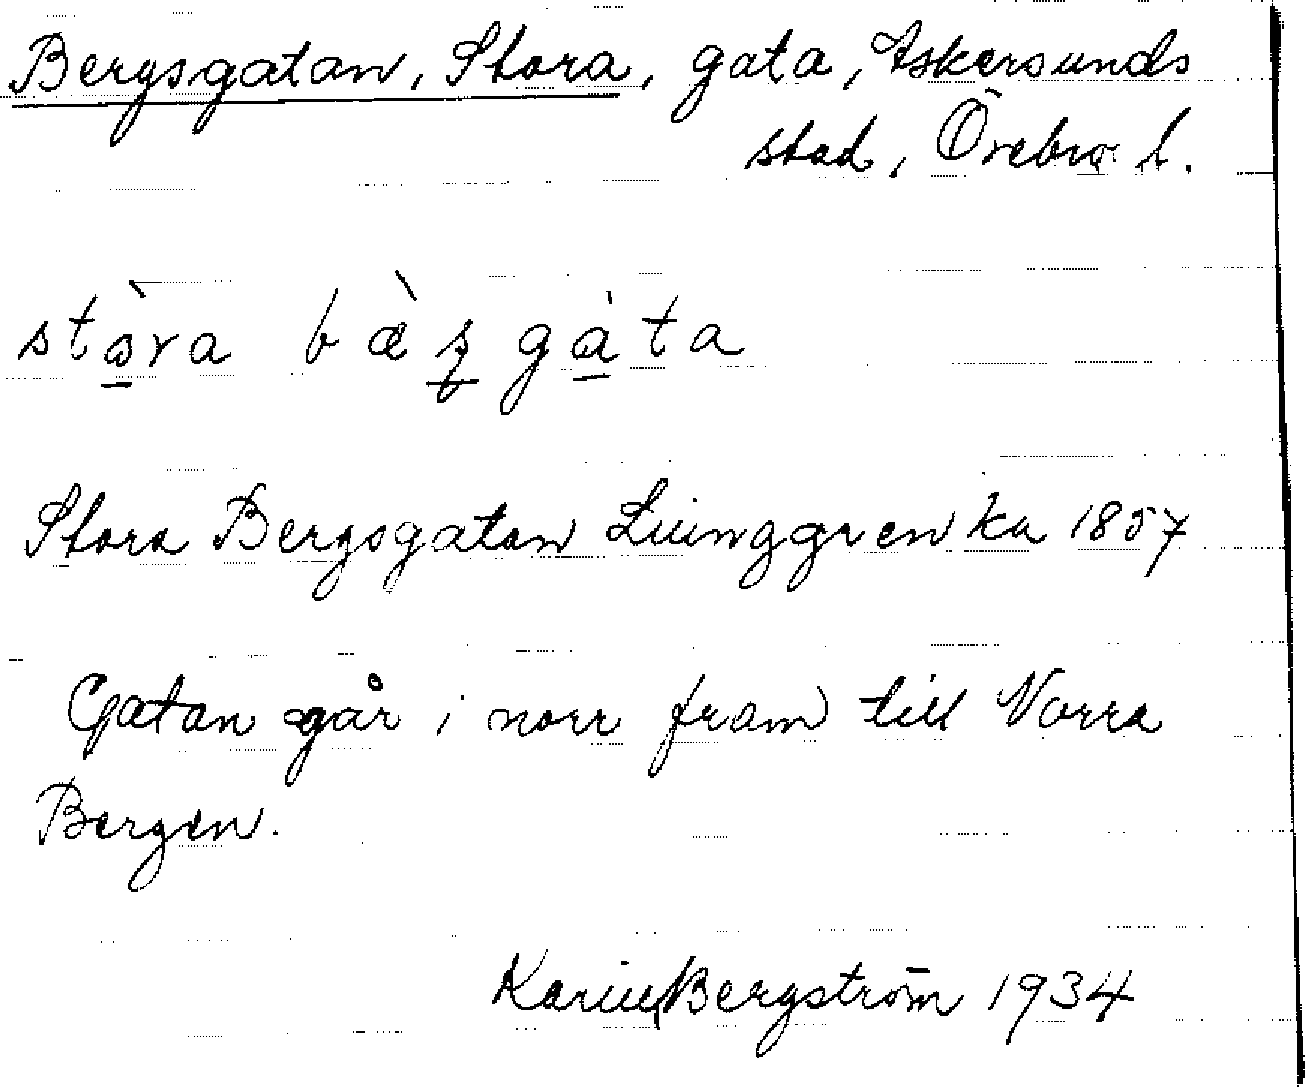 Bergsgatan, Stora, gata, Askersunds
stad, Örebro l.
stò̱ra bæ̀ʂgà̱ta
Stora Bergsgatan Ljunggren ka 1857
Gatan går i norr fram till Norra
Bergen.
Karin Bergström 1934